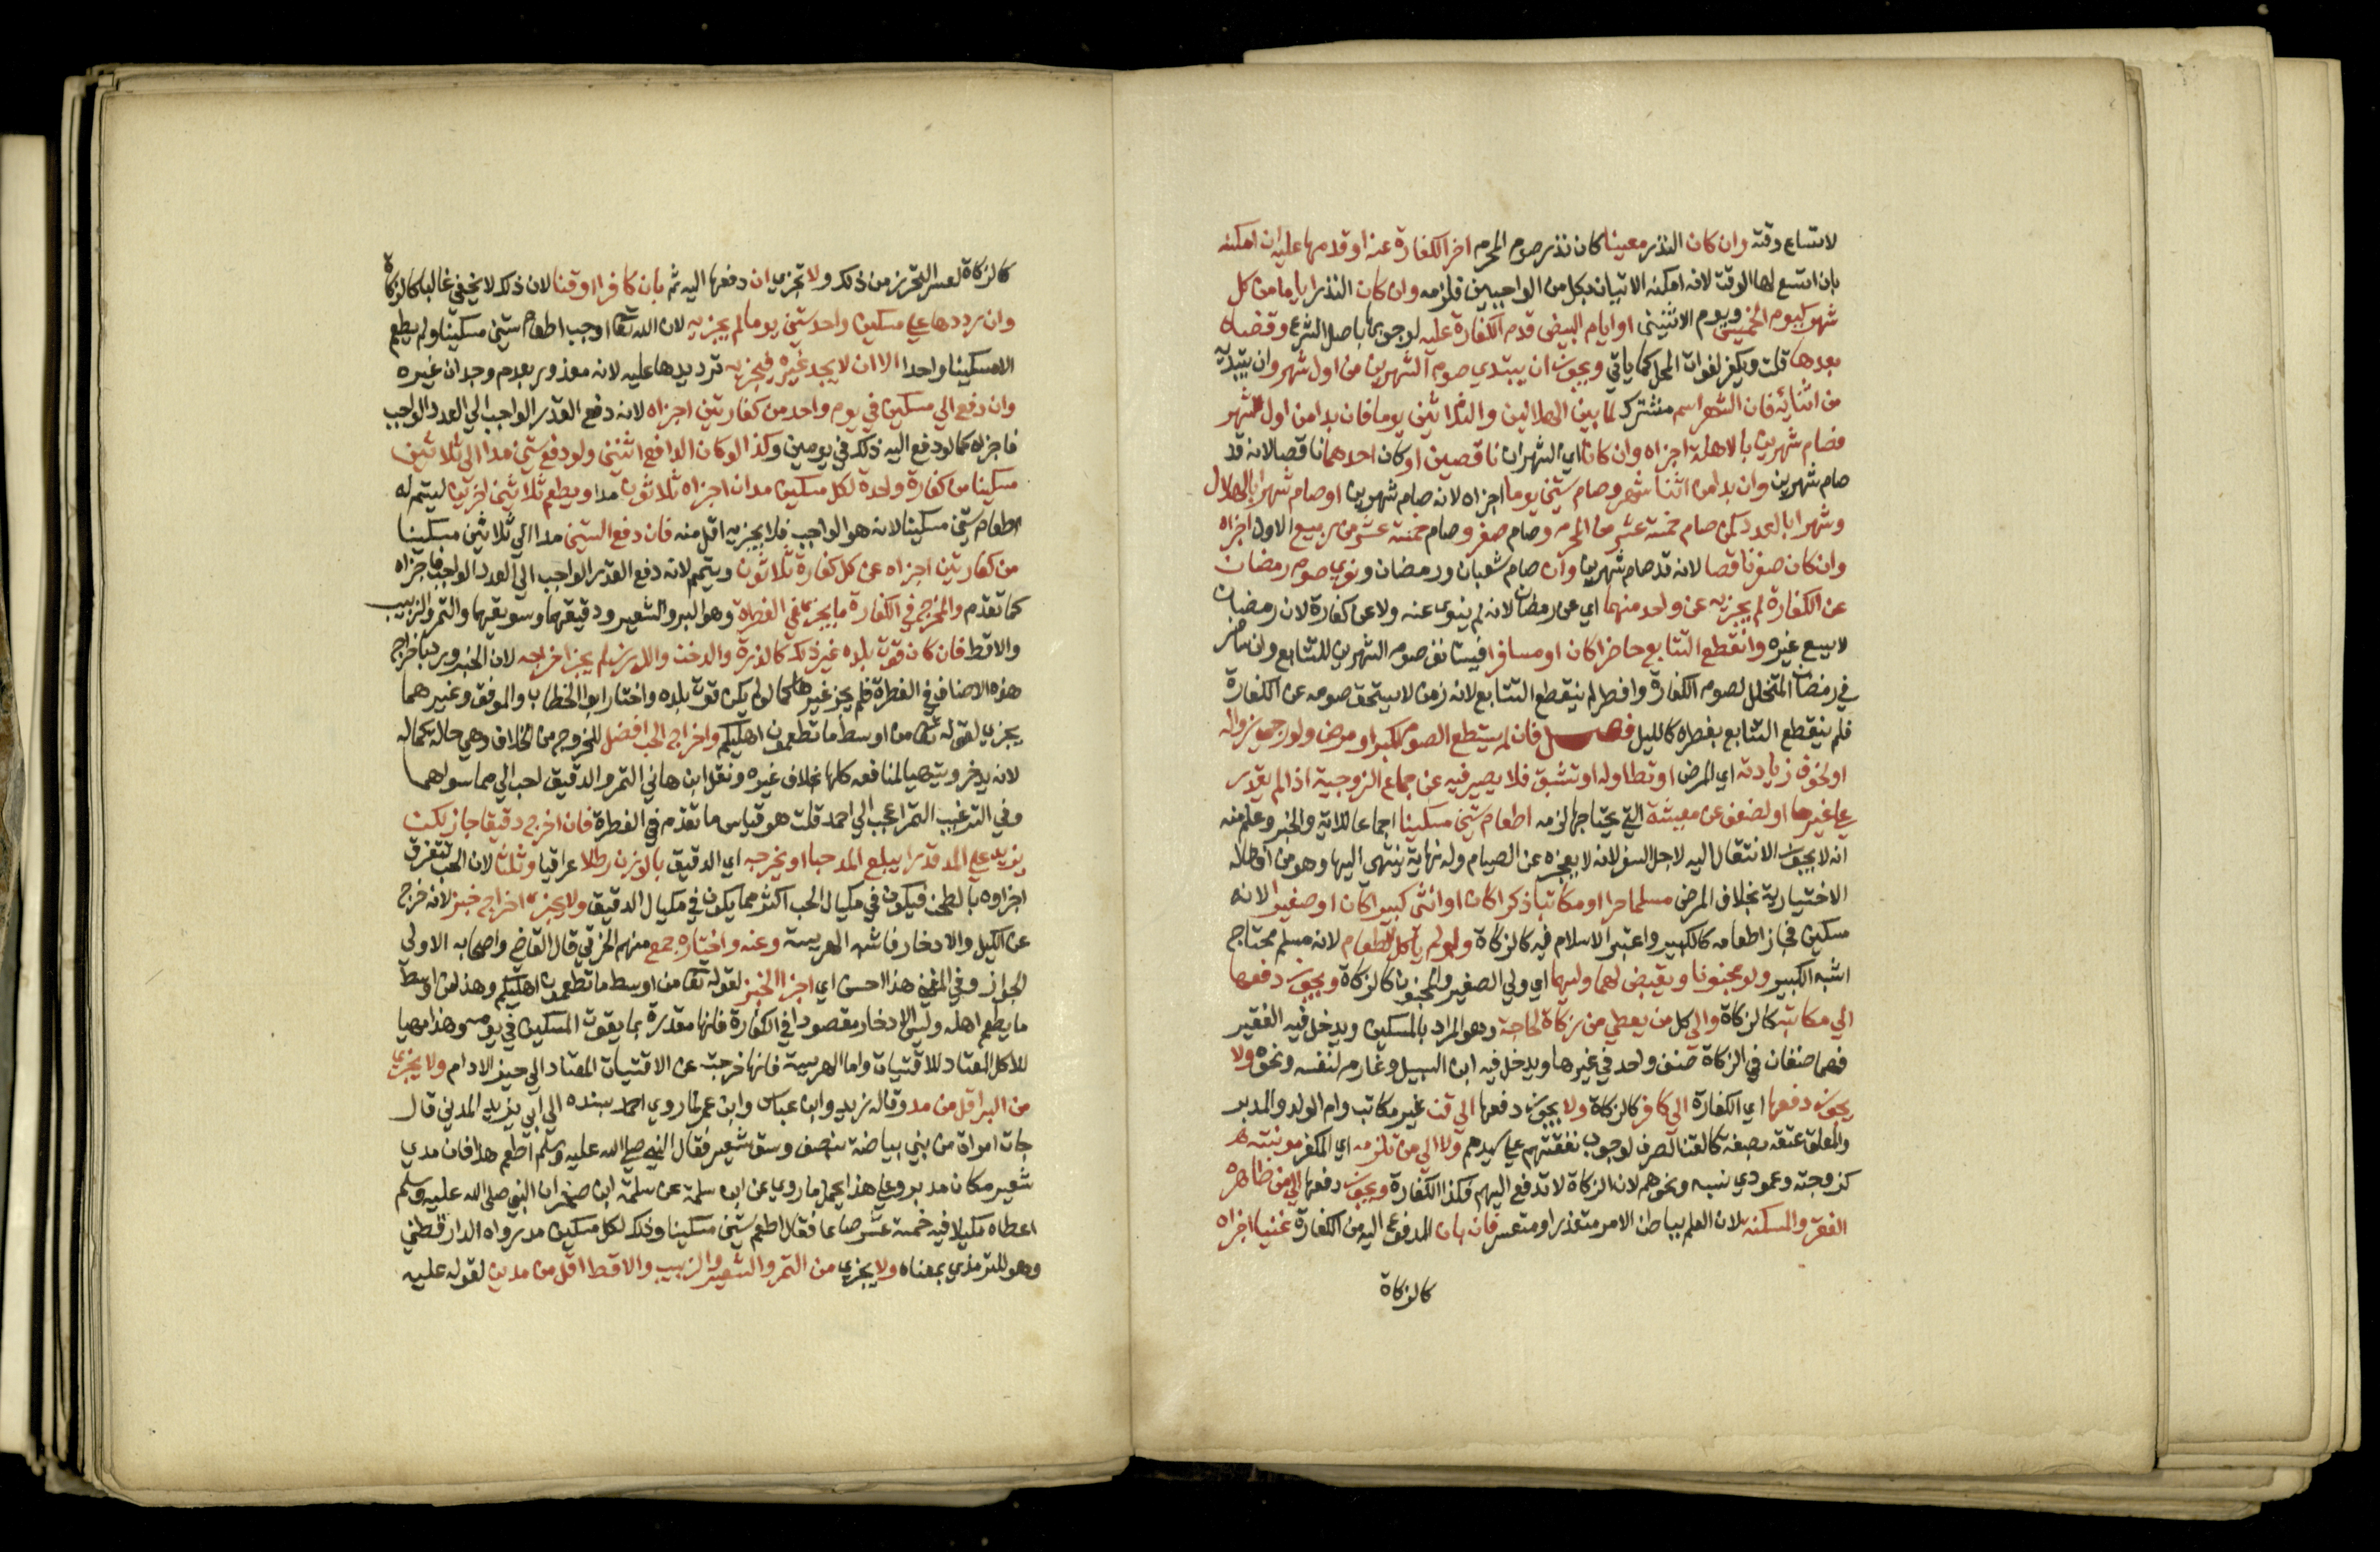 لاتساع وقته وان كان النذر معينا كان نذر صوم المحرم اخر الكفارة عنه او قدمها عليه ان امكنه
بان اتسع لها الوقت لانه امكنه الاتيان بكل من الواجبين فلزمه وان كان النذر اياما من كل
شهر كيوم الخميس ويوم الاثنين او ايام البيض قدم الكفارة عليه لوجوبها باصل الشرع وقضاه
بعدها قلت ويكفر لفوات المحل كما ياتي ويجوز ان يبتدي صوم الشهرين من اول شهر وان يبتديه
من اثنائه فان الشهر اسم مشترك لما بين الهلالين والثلاثين يوما فان بدا من اول شهر
فصام شهرين بالاهلة اجزاه وان كانا اي الشهران ناقصين او كان احدهما ناقصا لانه قد
صام شهرين وان بدا من اثنا شهر وصام ستين يوما اجزاه لانه صام شهرين او صام شهرا بالهلال
وشهرا بالعدد كمن صام خمسة عشر من المحرم وصام صفر وصام خمسة عشر من ربيع الاول اجزاه
وان كان صفر ناقصا لانه قد صام شهرين وان صام شعبان ورمضان ونوي صوم رمضان
عن الكفارة لم يجزيه عن واحد منهما اي عن رمضان لانه لم ينوي عنه ولا عن كفارة لان رمضان
لا يسع غيره وانقطع التتابع حاضرا كان او مسافرا فيستانف صوم الشهرين للتتابع وان سافر
في رمضان المتخلل لصوم الكفارة وافطر لم ينقطع التتابع لانه زمن لا يستحق صومه عن الكفارة
فلم ينقطع التتابع بفطره كالليل فصل فان لم يستطع الصوم لكبر او مرض ولو رجي زواله
او لخوف زيادته اي المرض او تطاوله او تشبق فلا يصبر فيه عن جماع الزوجية اذا لم يقدر
علي غيرها او لضعف عن معيشة التي يحتاجها لزمه اطعام ستين مسكينا اجماعا للاية والخبر وعلم منه
انه لا يجوز الانتقال اليه لاجل السفر لانه لا يعجزه عن الصيام وله نهاية ينتهي اليها وهو من افعاله
الاختيارية بخلاف المرض مسلما حرا او مكاتبا ذكرا كان او انثي كبيرا كان او صغيرا لانه
مسكين فجاز اطعامه كالكبير واعتبر الاسلام فيه كالزكاة ولو لم ياكل الطعام لانه مسلم محتاج
اشبه الكبير ولو مجنونا ويقبض لهما وليهما اي ولي الصغير والمجنون كالزكاة ويجوز دفعها
الي مكاتبه كالزكاة والي كل من يعطي من زكاة لحاجة وهو المراد بالمسكين ويدخل فيه الفقير
فهما صنفان في الزكاة صنف واحد في غيرها ويدخل فيه ابن السبيل وغارم لنفسه ونحوه ولا
يجوز دفعها اي الكفارة الي كافر كالزكاة ولا يجوز دفعها الي قن غير مكاتب وام الولد والمدبر
والمعلق عتقه بصفة كالقنا الصرف لوجوب نفقتهم علي سيدهم ولا الي من تلزمه اي المكفر مونته
كزوجته وعمودي نسبه ونحوهم لان الزكاة لا تدفع اليهم فكذا الكفارة ويجوز دفعها الي من ظاهره
الفقر والمسكنه لان العلم بباطن الامر متعذر او متعسر فان بان المدفوع اليه من الكفارة غنيا اجزاه
كالزكاة
كالزكاة لعسر التحرز من ذلك ولا تجزي ان دفعها اليه ثم بان كافرا او قنا لان ذلك لا يخفي غالبا كالزكاة
وان رددها علي مسكين واحد ستين يوما لم يجزيه لان الله تعا اوجب اطعام ستين مسكينا ولم يطعم
الا مسكينا واحدا الا ان لا يجد غيره فيجزيه ترديدها عليه لانه معذور بعدم وجدان غيره
وان دفع الي مسكين في يوم واحد من كفارتين اجزاه لانه دفع القدر الواجب الي العدد الواجب
فاجزاه كما لو دفع اليه ذلك في يومين وكذا لو كان الدافع اثنين ولو دفع ستين مدا الي ثلاثين
مسكينا من كفارة واحدة لكل مسكين مدان اجزاه ثلاثون مدا ويطعم ثلاثين اخرين ليتم له
اطعام ستين مسكينا لانه هو الواجب فلا يجزيه اقل منه فان دفع الستين مدا الي ثلاثين مسكينا
من كفارتين اجزاه عن كل كفارة ثلاثون ويتمم لانه دفع القدر الواجب الي العدد الواجب فاجزاه
كما تقدم والمخرج في الكفارة ما يجزي في الفطرة وهو البر والشعير ودقيقهما وسويقهما والتمر والزبيب
والاقط فان كان قوت بلده غير ذلك كالذرة والدخن والارز لم يجز اخراجه لان الخبر ورد باخراج
هذه الاصناف في الفطرة فلم يجز غيرها كما لو لم يكن قوت بلده واختار ابو الخطاب والموفق وغيرهما
يجزي لقوله تعا من اوسط ما تطعمون اهليكم واخراج الحب افضل للخروج من الخلاف وهي حالة كماله
لانه يدخر ويتهيا لمنافعه كلها بخلاف غيره ونقل ابن هاني التمر والدقيق احب الي مما سواهما
وفي الترغيب التمر اعجب الي احمد قلت هو قياس ما تقدم في الفطرة فان اخرج دقيقا جاز لكن
يزيد علي المد قدرا يبلغ المد حبا او يخرجه اي الدقيق بالوزن رطلا عراقيا وثلثا لان الحب تتفرق
اجزاوه بالطحن فيكون في مكيال الحب اكثر مما يكون في مكيال الدقيق ولا يجزي اخراج خبز لانه خرج
عن الكيل والادخار فاشبه الهريسة وعنه واختاره جمع منهم الخرقي قال القاضي واصحابه الاولي
الجواز وفي المغني هذا احسن اي اجزا الخبز لقوله تعا من اوسط ما تطعمون اهليكم وهذا من اوسط
ما يطعم اهله وليس الادخار مقصودا في الكفارة فانها مقدرة بما يقوت المسكين في يومه وهذا مهيا
للاكل المعتاد للاقتيات واما الهريسة فانها خرجت عن الاقتيات المعتاد الي حيز الادام ولا يجزي
من البر اقل من مد وقاله زيد وابن عباس وابن عمر لما روي احمد بسنده الي ابي يزيد المدني قال
جات امراة من بني بياضة بنصف وسق شعير فقال النبي صلي الله عليه وسلم اطعم هذا فان مدي
شعير مكان مد بر وعلي هذا يحمل ما روي عن ابي سلمة عن سلمة ابن صخر ان النبي صلى الله عليه وسلم
اعطاه مكيلا فيه خمسة عشر صاعا فقال اطعم ستين مسكينا وذلك لكل مسكين مد رواه الدارقطني
وهو للترمذي بمعناه ولا يجزي من التمر والشعير والزبيب والاقط اقل من مدين لقوله عليه